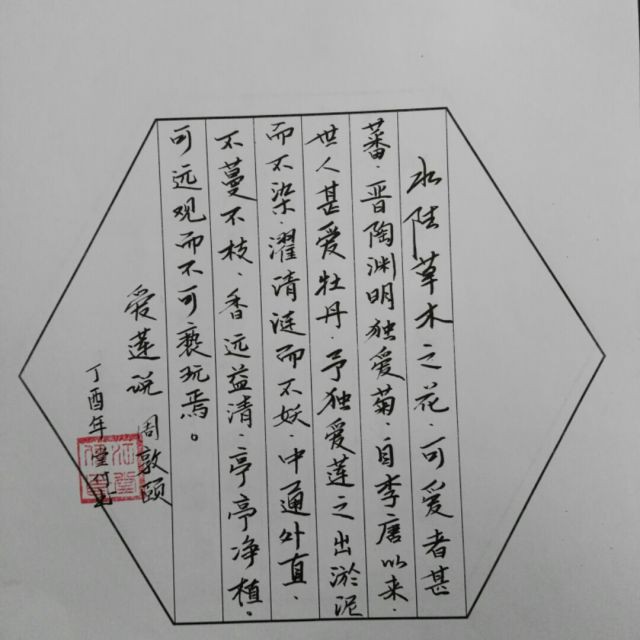 水陆草木之花、可爱者甚
蕃、晋陶渊明独爱菊、自李唐以来、
世人甚爱牡丹、予独爱莲之出淤泥
而不染、濯清涟而不妖、中通外直、
不蔓不枝、香远益清、亭亭净植、
可远观而不可亵玩焉。
爱莲说 周敦颐
丁酉年